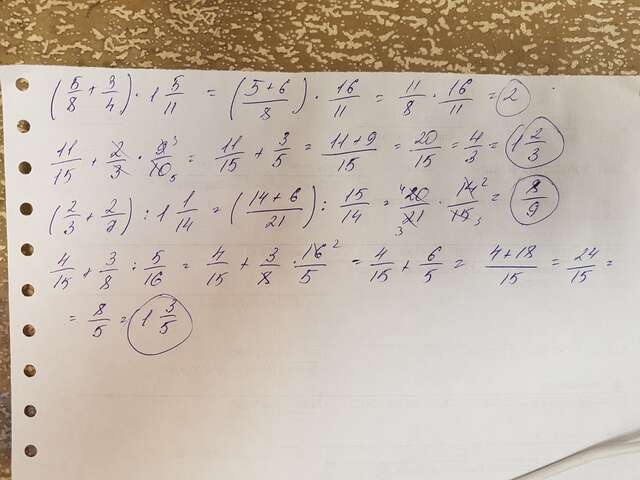 (5/8 + 3/4) : 1 5/11 = ((5+6)/8) · 16/11 = 11/8 · 16/11 = 2
11/15 + 2/3 · 9/10 = 11/15 + 3/5 = (11+9)/15 = 20/15 = 4/3 = 1 2/3
(2/3 + 2/7) : 1 1/14 = ((14+6)/21) : 15/14 = 20/21 · 14/15 = 8/9
4/15 + 3/8 : 5/16 = 4/15 + 3/8 · 16/5 = 4/15 + 6/5 = (4+18)/15 = 24/15 =
= 8/5 = 1 3/5